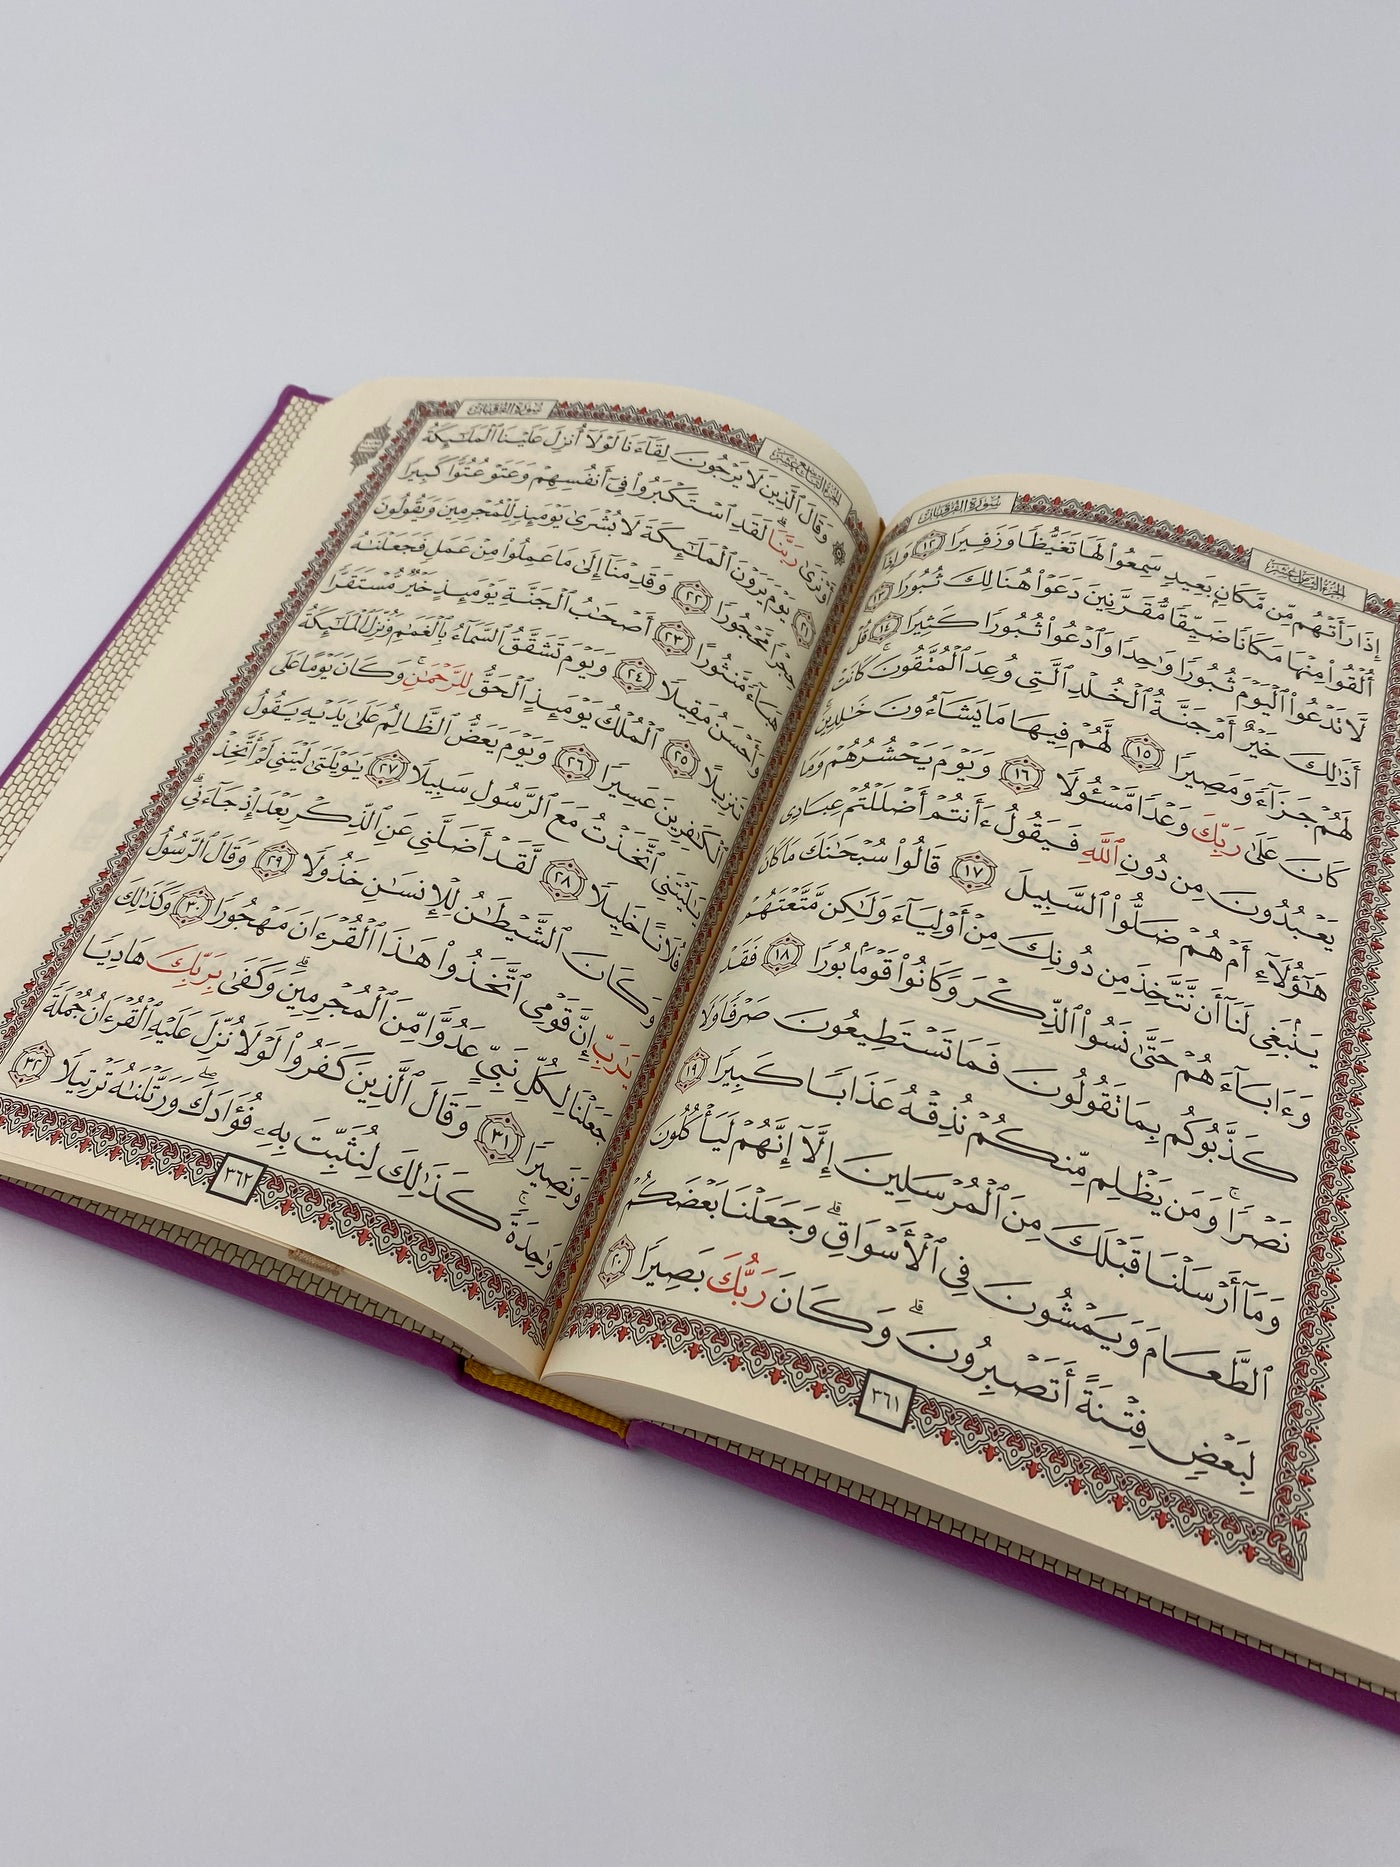 سُورَةُ الفُرْقَانِ
الجُزْءُ الثَّامِنَ عَشَرَ
إِذَا رَأَتْهُم مِّن مَّكَانٍۭ بَعِيدٍ سَمِعُوا۟ لَهَا تَغَيُّظًا وَزَفِيرًا ١٢ وَإِذَآ
أُلْقُوا۟ مِنْهَا مَكَانًا ضَيِّقًا مُّقَرَّنِينَ دَعَوْا۟ هُنَالِكَ ثُبُورًا ١٣
لَّا تَدْعُوا۟ ٱلْيَوْمَ ثُبُورًا وَٰحِدًا وَٱدْعُوا۟ ثُبُورًا كَثِيرًا ١٤ قُلْ
أَذَٰلِكَ خَيْرٌ أَمْ جَنَّةُ ٱلْخُلْدِ ٱلَّتِى وُعِدَ ٱلْمُتَّقُونَ ۚ كَانَتْ
لَهُمْ جَزَآءً وَمَصِيرًا ١٥ لَّهُمْ فِيهَا مَا يَشَآءُونَ خَٰلِدِينَ ۚ
كَانَ عَلَىٰ رَبِّكَ وَعْدًا مَّسْـُٔولًا ١٦ وَيَوْمَ يَحْشُرُهُمْ وَمَا
يَعْبُدُونَ مِن دُونِ ٱللَّهِ فَيَقُولُ ءَأَنتُمْ أَضْلَلْتُمْ عِبَادِى
هَٰٓؤُلَآءِ أَمْ هُمْ ضَلُّوا۟ ٱلسَّبِيلَ ١٧ قَالُوا۟ سُبْحَٰنَكَ مَا كَانَ
يَنۢبَغِى لَنَآ أَن نَّتَّخِذَ مِن دُونِكَ مِنْ أَوْلِيَآءَ وَلَٰكِن مَّتَّعْتَهُمْ
وَءَابَآءَهُمْ حَتَّىٰ نَسُوا۟ ٱلذِّكْرَ وَكَانُوا۟ قَوْمًۢا بُورًا ١٨ فَقَدْ
كَذَّبُوكُم بِمَا تَقُولُونَ فَمَا تَسْتَطِيعُونَ صَرْفًا وَلَا
نَصْرًا ۚ وَمَن يَظْلِم مِّنكُمْ نُذِقْهُ عَذَابًا كَبِيرًا ١٩
وَمَآ أَرْسَلْنَا قَبْلَكَ مِنَ ٱلْمُرْسَلِينَ إِلَّآ إِنَّهُمْ لَيَأْكُلُونَ
ٱلطَّعَامَ وَيَمْشُونَ فِى ٱلْأَسْوَاقِ ۗ وَجَعَلْنَا بَعْضَكُمْ
لِبَعْضٍ فِتْنَةً أَتَصْبِرُونَ ۗ وَكَانَ رَبُّكَ بَصِيرًا ٢٠
٣٦١
سُورَةُ الفُرْقَانِ
الجُزْءُ التَّاسِعَ عَشَرَ
۞ وَقَالَ ٱلَّذِينَ لَا يَرْجُونَ لِقَآءَنَا لَوْلَآ أُنزِلَ عَلَيْنَا ٱلْمَلَٰٓئِكَةُ
أَوْ نَرَىٰ رَبَّنَا ۗ لَقَدِ ٱسْتَكْبَرُوا۟ فِىٓ أَنفُسِهِمْ وَعَتَوْ عُتُوًّا كَبِيرًا
٢١ يَوْمَ يَرَوْنَ ٱلْمَلَٰٓئِكَةَ لَا بُشْرَىٰ يَوْمَئِذٍ لِّلْمُجْرِمِينَ وَيَقُولُونَ
حِجْرًا مَّحْجُورًا ٢٢ وَقَدِمْنَآ إِلَىٰ مَا عَمِلُوا۟ مِنْ عَمَلٍ فَجَعَلْنَٰهُ
هَبَآءً مَّنثُورًا ٢٣ أَصْحَٰبُ ٱلْجَنَّةِ يَوْمَئِذٍ خَيْرٌ مُّسْتَقَرًّا
وَأَحْسَنُ مَقِيلًا ٢٤ وَيَوْمَ تَشَقَّقُ ٱلسَّمَآءُ بِٱلْغَمَٰمِ وَنُزِّلَ ٱلْمَلَٰٓئِكَةُ
تَنزِيلًا ٢٥ ٱلْمُلْكُ يَوْمَئِذٍ ٱلْحَقُّ لِلرَّحْمَٰنِ ۚ وَكَانَ يَوْمًا عَلَى
ٱلْكَٰفِرِينَ عَسِيرًا ٢٦ وَيَوْمَ يَعَضُّ ٱلظَّالِمُ عَلَىٰ يَدَيْهِ يَقُولُ
يَٰلَيْتَنِى ٱتَّخَذْتُ مَعَ ٱلرَّسُولِ سَبِيلًا ٢٧ يَٰوَيْلَتَىٰ لَيْتَنِى لَمْ أَتَّخِذْ
فُلَانًا خَلِيلًا ٢٨ لَّقَدْ أَضَلَّنِى عَنِ ٱلذِّكْرِ بَعْدَ إِذْ جَآءَنِى ۗ
وَكَانَ ٱلشَّيْطَٰنُ لِلْإِنسَٰنِ خَذُولًا ٢٩ وَقَالَ ٱلرَّسُولُ
يَٰرَبِّ إِنَّ قَوْمِى ٱتَّخَذُوا۟ هَٰذَا ٱلْقُرْءَانَ مَهْجُورًا ٣٠ وَكَذَٰلِكَ
جَعَلْنَا لِكُلِّ نَبِىٍّ عَدُوًّا مِّنَ ٱلْمُجْرِمِينَ ۗ وَكَفَىٰ بِرَبِّكَ هَادِيًا
وَنَصِيرًا ٣١ وَقَالَ ٱلَّذِينَ كَفَرُوا۟ لَوْلَا نُزِّلَ عَلَيْهِ ٱلْقُرْءَانُ جُمْلَةً
وَٰحِدَةً ۚ كَذَٰلِكَ لِنُثَبِّتَ بِهِۦ فُؤَادَكَ ۖ وَرَتَّلْنَٰهُ تَرْتِيلًا ٣٢
٣٦٢